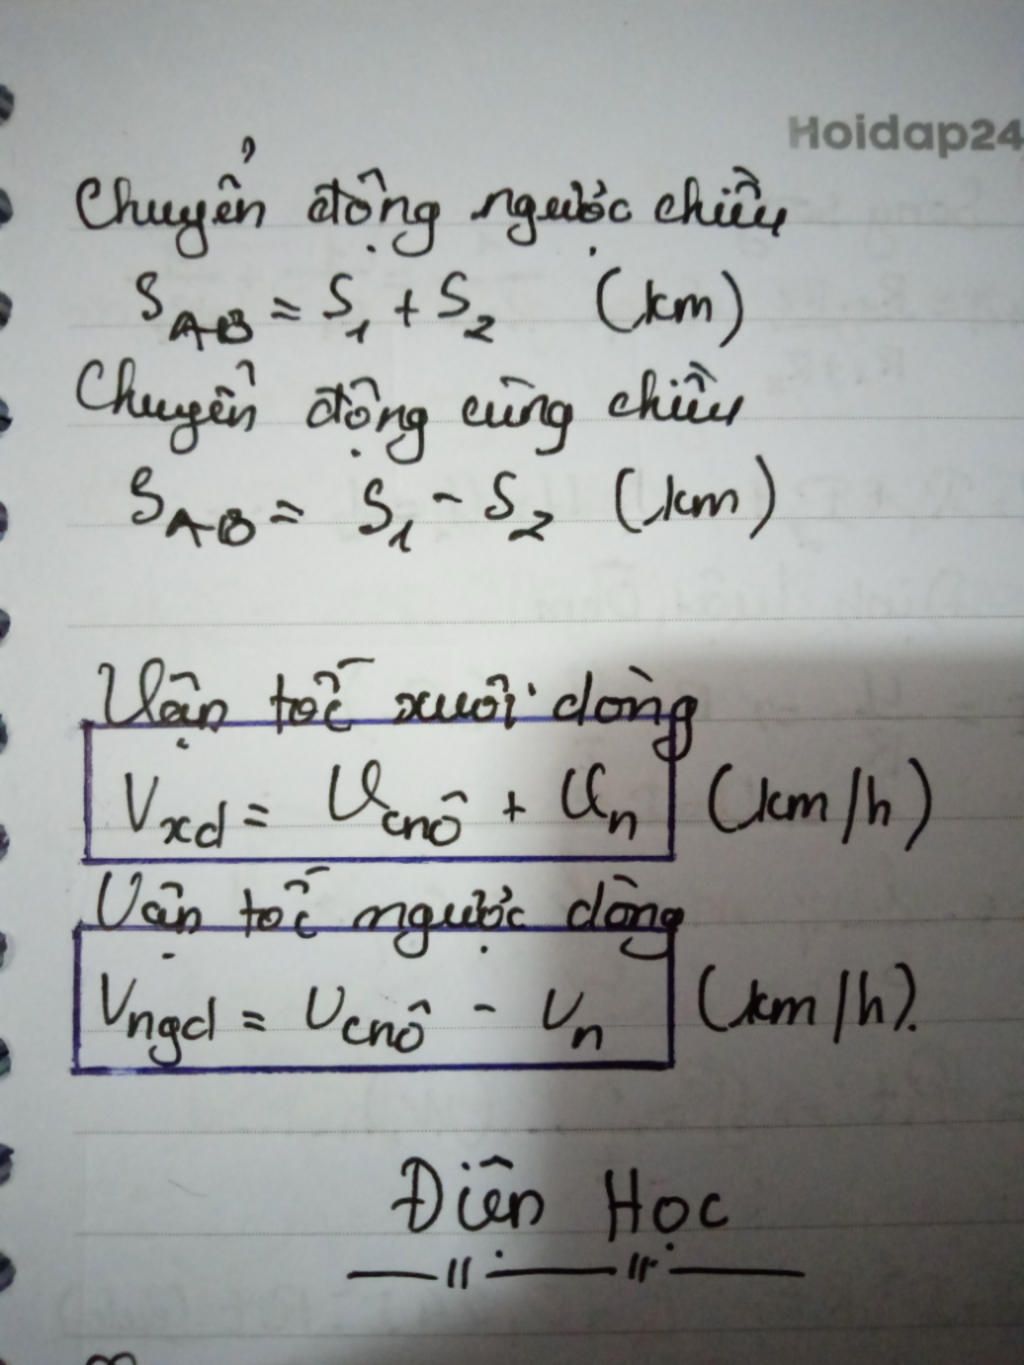 Hoidap24
Chuyển động ngược chiều
S_AB = S_1 + S_2 (km)
Chuyển động cùng chiều
S_AB = S_1 - S_2 (km)
Vận tốc xuôi dòng
V_xd = V_cnô + V_n (km/h)
Vận tốc ngược dòng
V_ngd = V_cnô - V_n (km/h).
Điện Học